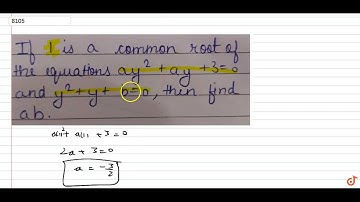 8105
If 1 is a common root of
the equations ay² + ay + 3 = 0
and y² + y + b = 0, then find
ab.
a(1)² + a(1) + 3 = 0
2a + 3 = 0
a = -3/2